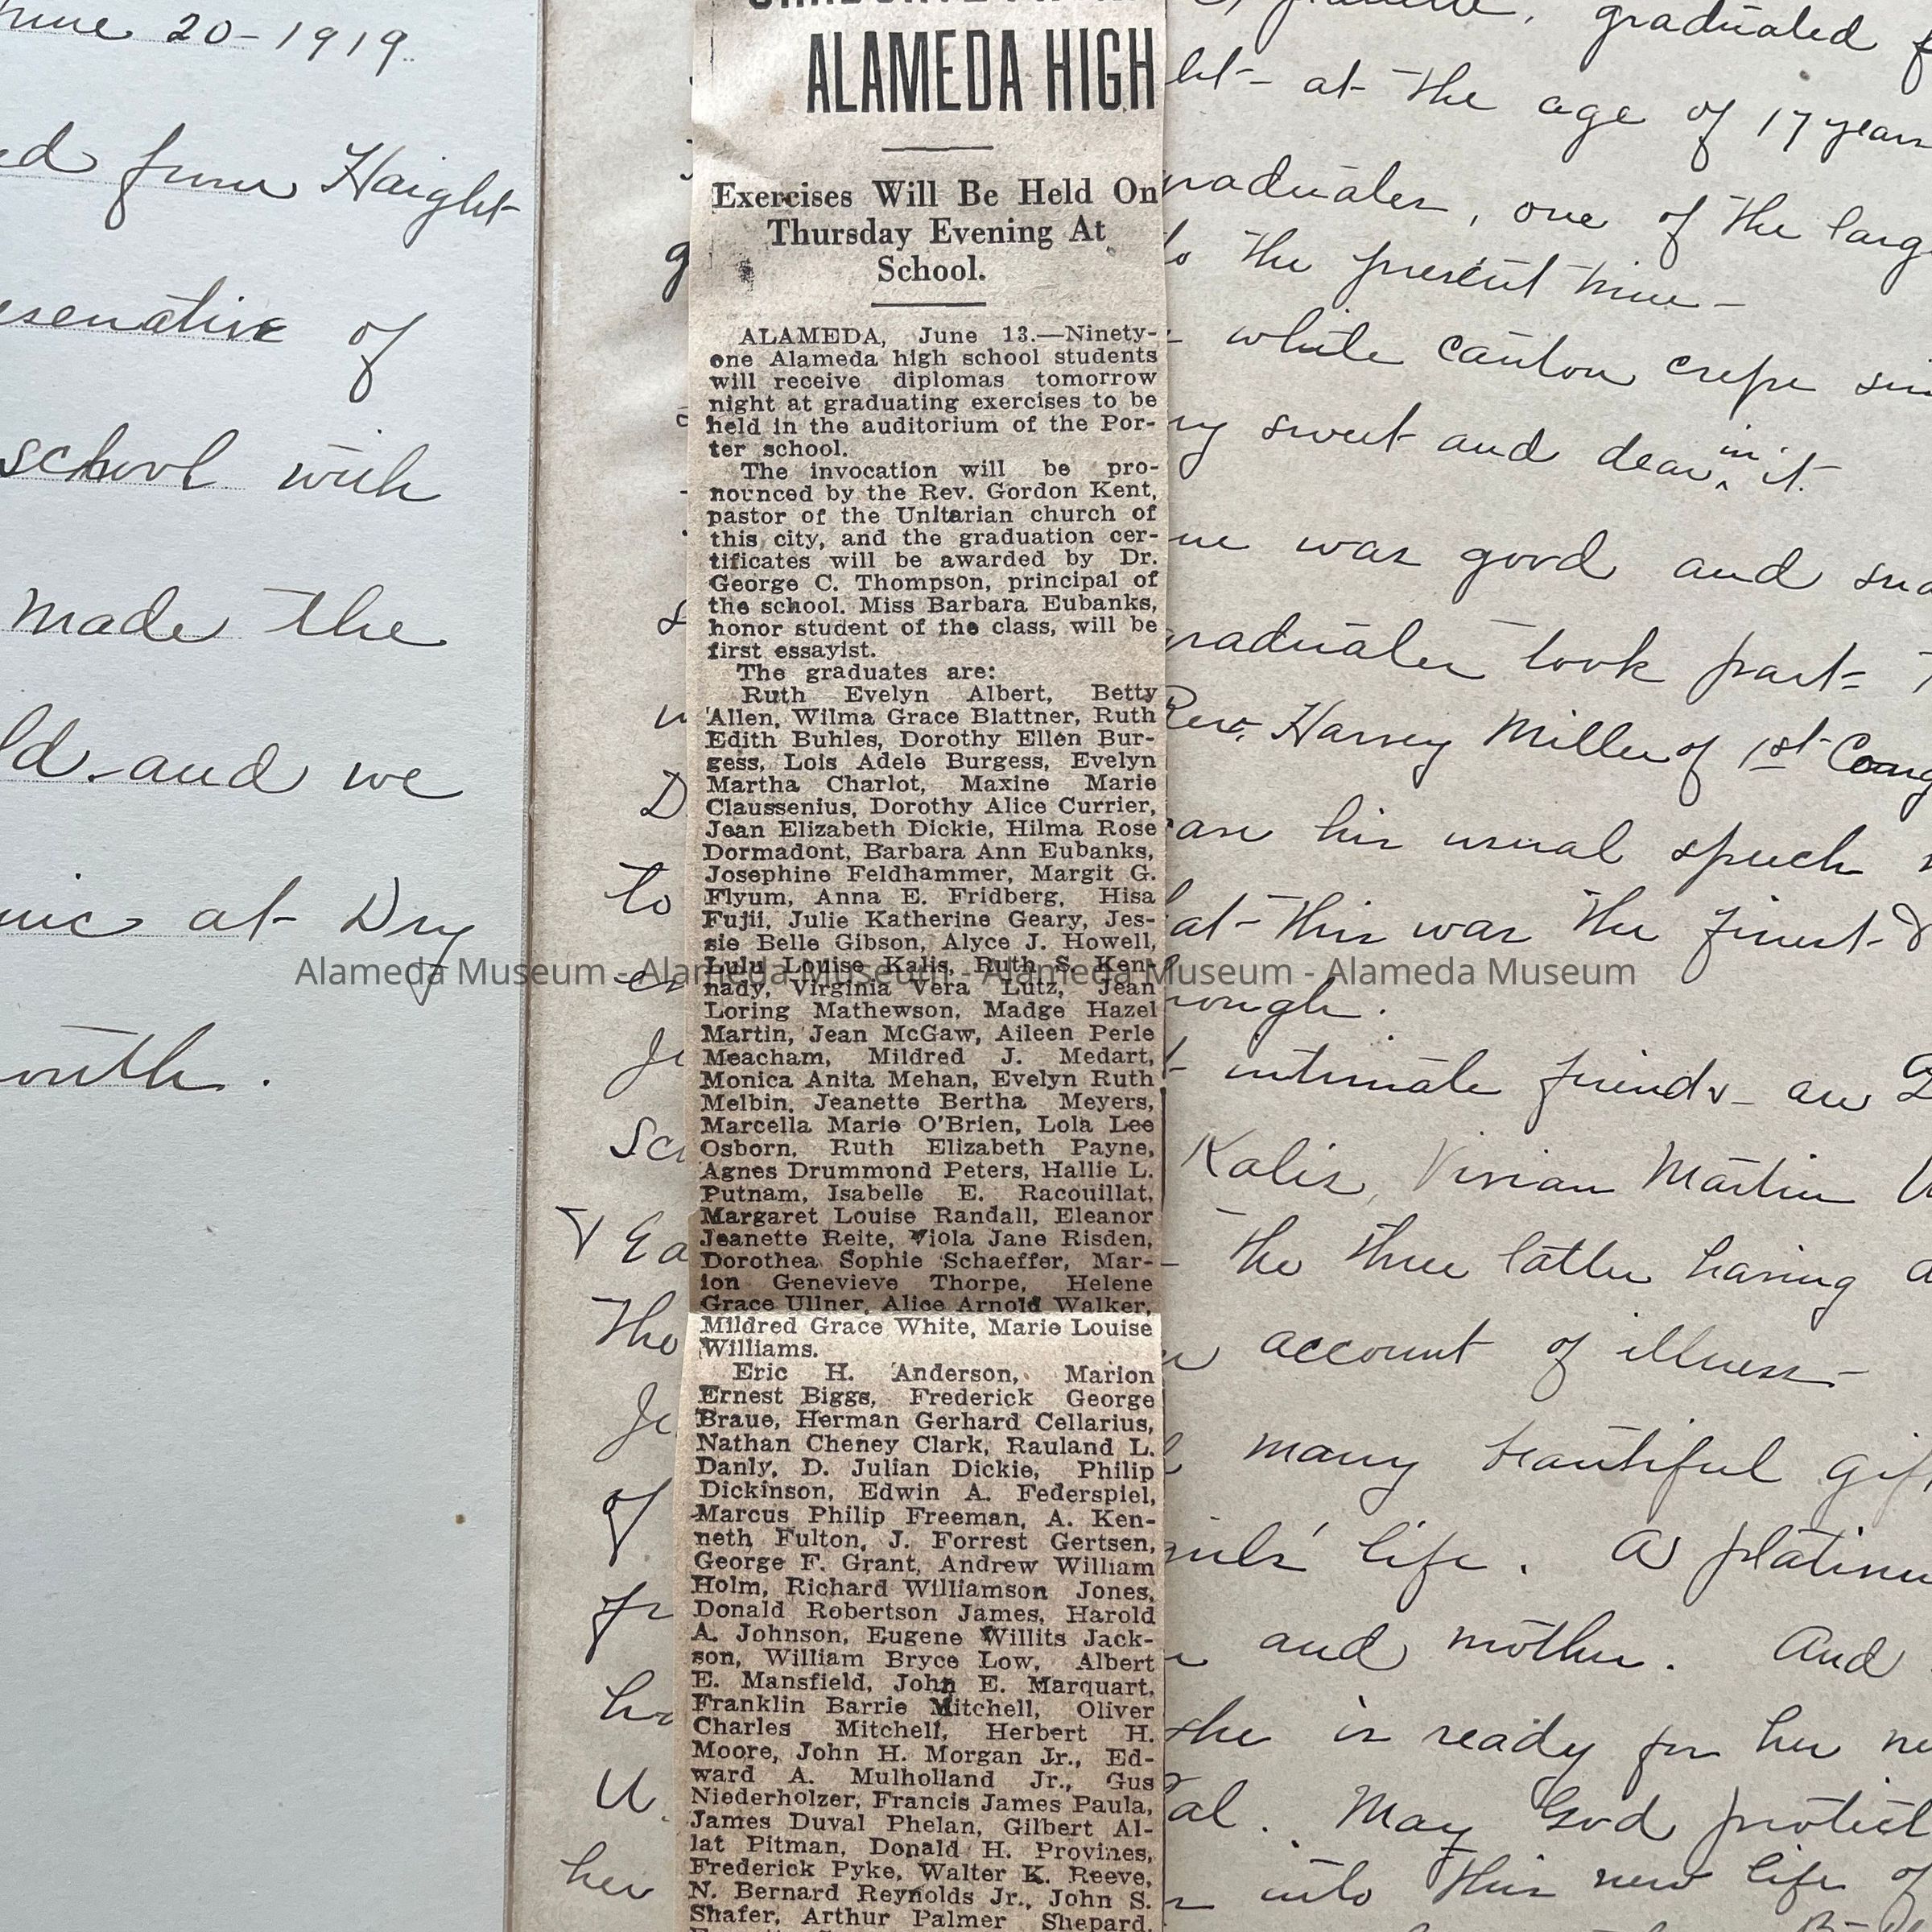 June 20-1919.
ed from Haight
esenative of
school with
made the
ld and we
nic at Dry
outh.
ALAMEDA HIGH
Exercises Will Be Held On
Thursday Evening At
School.
ALAMEDA, June 13.—Ninety-
one Alameda high school students
will receive diplomas tomorrow
night at graduating exercises to be
held in the auditorium of the Por-
ter school.
The invocation will be pro-
nounced by the Rev. Gordon Kent,
pastor of the Unitarian church of
this city, and the graduation cer-
tificates will be awarded by Dr.
George C. Thompson, principal of
the school. Miss Barbara Eubanks,
honor student of the class, will be
first essayist.
The graduates are:
Ruth Evelyn Albert, Betty
Allen, Wilma Grace Blattner, Ruth
Edith Buhles, Dorothy Ellen Bur-
gess, Lois Adele Burgess, Evelyn
Martha Charlot, Maxine Marie
Claussenius, Dorothy Alice Currier,
Jean Elizabeth Dickie, Hilma Rose
Dormadont, Barbara Ann Eubanks,
Josephine Feldhammer, Margit G.
Flyum, Anna E. Fridberg, Hisa
Fujii, Julie Katherine Geary, Jes-
sie Belle Gibson, Alyce J. Howell,
Lulu Louise Kalis, Ruth S. Ken-
nady, Virginia Vera Lutz, Jean
Loring Mathewson, Madge Hazel
Martin, Jean McGaw, Aileen Perle
Meacham, Mildred J. Medart,
Monica Anita Mehan, Evelyn Ruth
Melbin, Jeanette Bertha Meyers,
Marcella Marie O'Brien, Lola Lee
Osborn, Ruth Elizabeth Payne,
Agnes Drummond Peters, Hallie L.
Putnam, Isabelle E. Racouillat,
Margaret Louise Randall, Eleanor
Jeanette Reite, Viola Jane Risden,
Dorothea Sophie Schaeffer, Mar-
ion Genevieve Thorpe, Helene
Grace Ullner, Alice Arnold Walker,
Mildred Grace White, Marie Louise
Williams.
Eric H. Anderson, Marion
Ernest Biggs, Frederick George
Braue, Herman Gerhard Cellarius,
Nathan Cheney Clark, Rauland L.
Danly, D. Julian Dickie, Philip
Dickinson, Edwin A. Federspiel,
Marcus Philip Freeman, A. Ken-
neth Fulton, J. Forrest Gertsen,
George F. Grant, Andrew William
Holm, Richard Williamson Jones,
Donald Robertson James, Harold
A. Johnson, Eugene Willits Jack-
son, William Bryce Low, Albert
E. Mansfield, John E. Marquart,
Franklin Barrie Mitchell, Oliver
Charles Mitchell, Herbert H.
Moore, John H. Morgan Jr., Ed-
ward A. Mulholland Jr., Gus
Niederholzer, Francis James Paula,
James Duval Phelan, Gilbert Al-
lat Pitman, Donald H. Provines,
Frederick Pyke, Walter K. Reeve,
N. Bernard Reynolds Jr., John S.
Shafer, Arthur Palmer Shepard,
graduated
at the age of 17 years
graduates, one of the larg
the present time-
white canton crepe
sweet and dear in it.
was good and
graduates took part=
Rev. Harvey Miller of 1st Cong
his usual speech
at this was the finest
to
hough.
intimate friends - are
Kalis, Vivian Martin
the three latter having
The
account of illness-
many beautiful gif
of
girls' life. A platinu
and mother. And
she is ready for her ne
al. May God protect
her
into this new life of
Alameda Museum - Alameda Museum - Alameda Museum - Alameda Museum